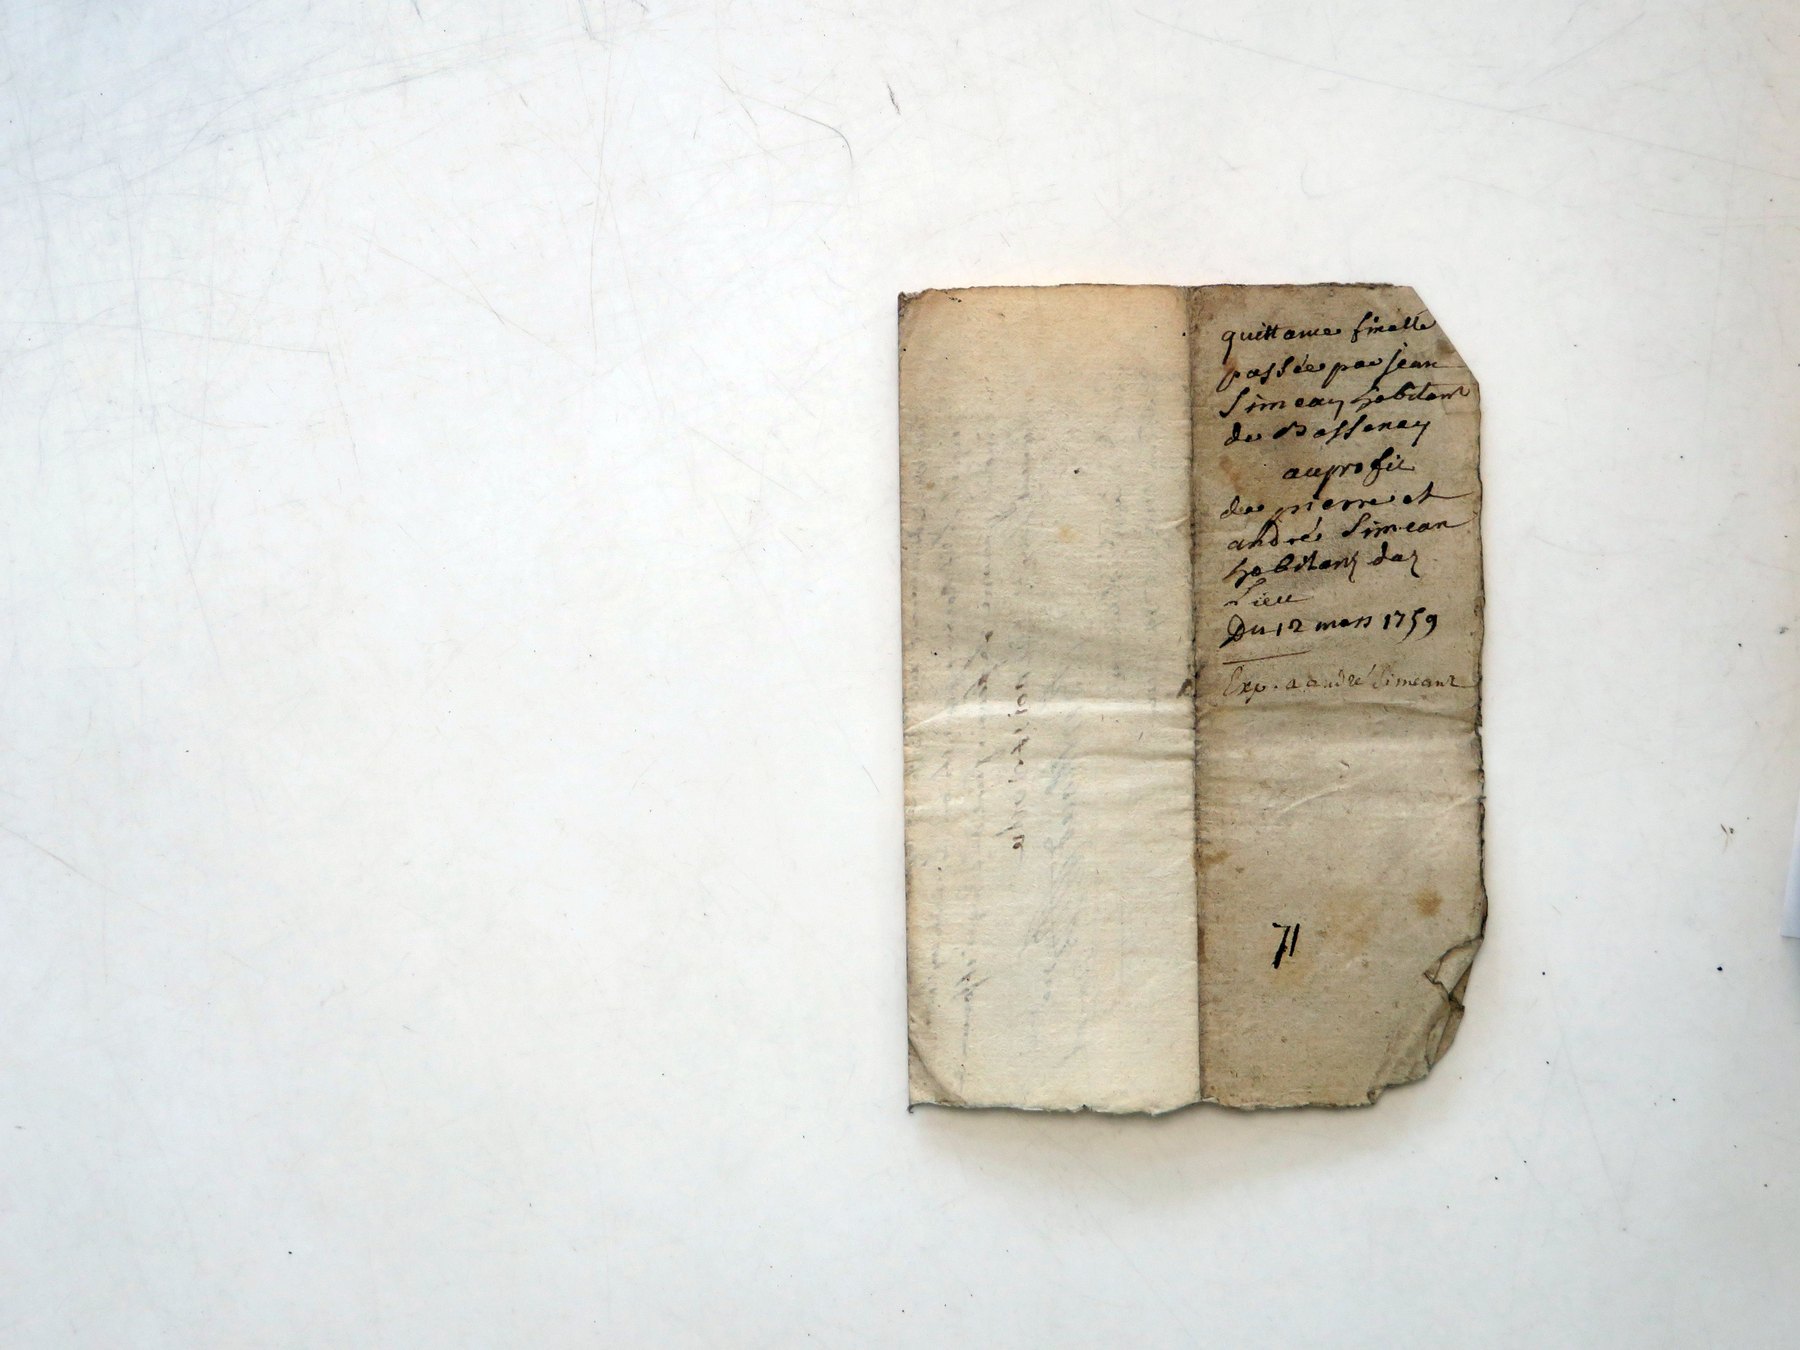 quittance finalle
passée par jean
Simean habitant
de Bassenay
au profit
de pierre et
andré Simean
habitans dud
Lieu
Du 12 mars 1759
Exp. a andré Simeant
71